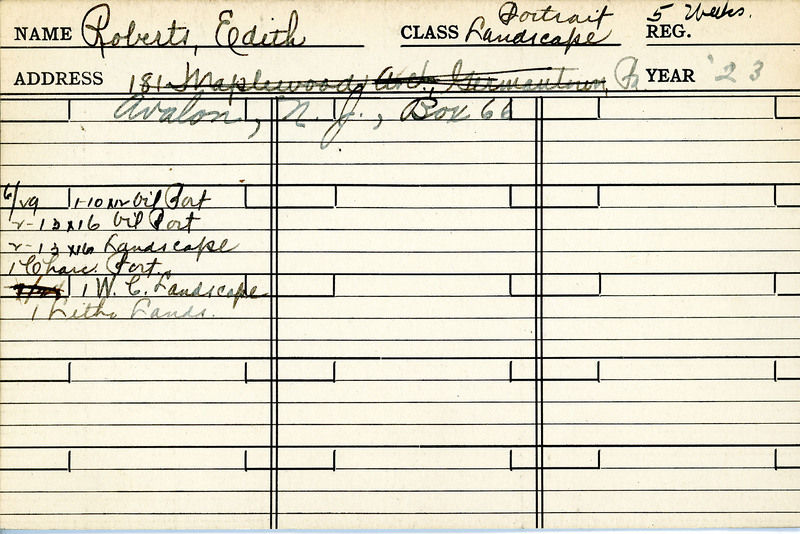 NAME Roberts, Edith CLASS Portrait Landscape REG. 5 Weeks.
ADDRESS 181 Maplewood Ave., Germantown, Pa YEAR '23
Avalon, N. J., Box 66
6/29 1-10x12 Oil Port
2-13x16 Oil Port
2-13x16 Landscape
1 Charc. Port.
1 W. C. Landscape
1 Litho Lands.